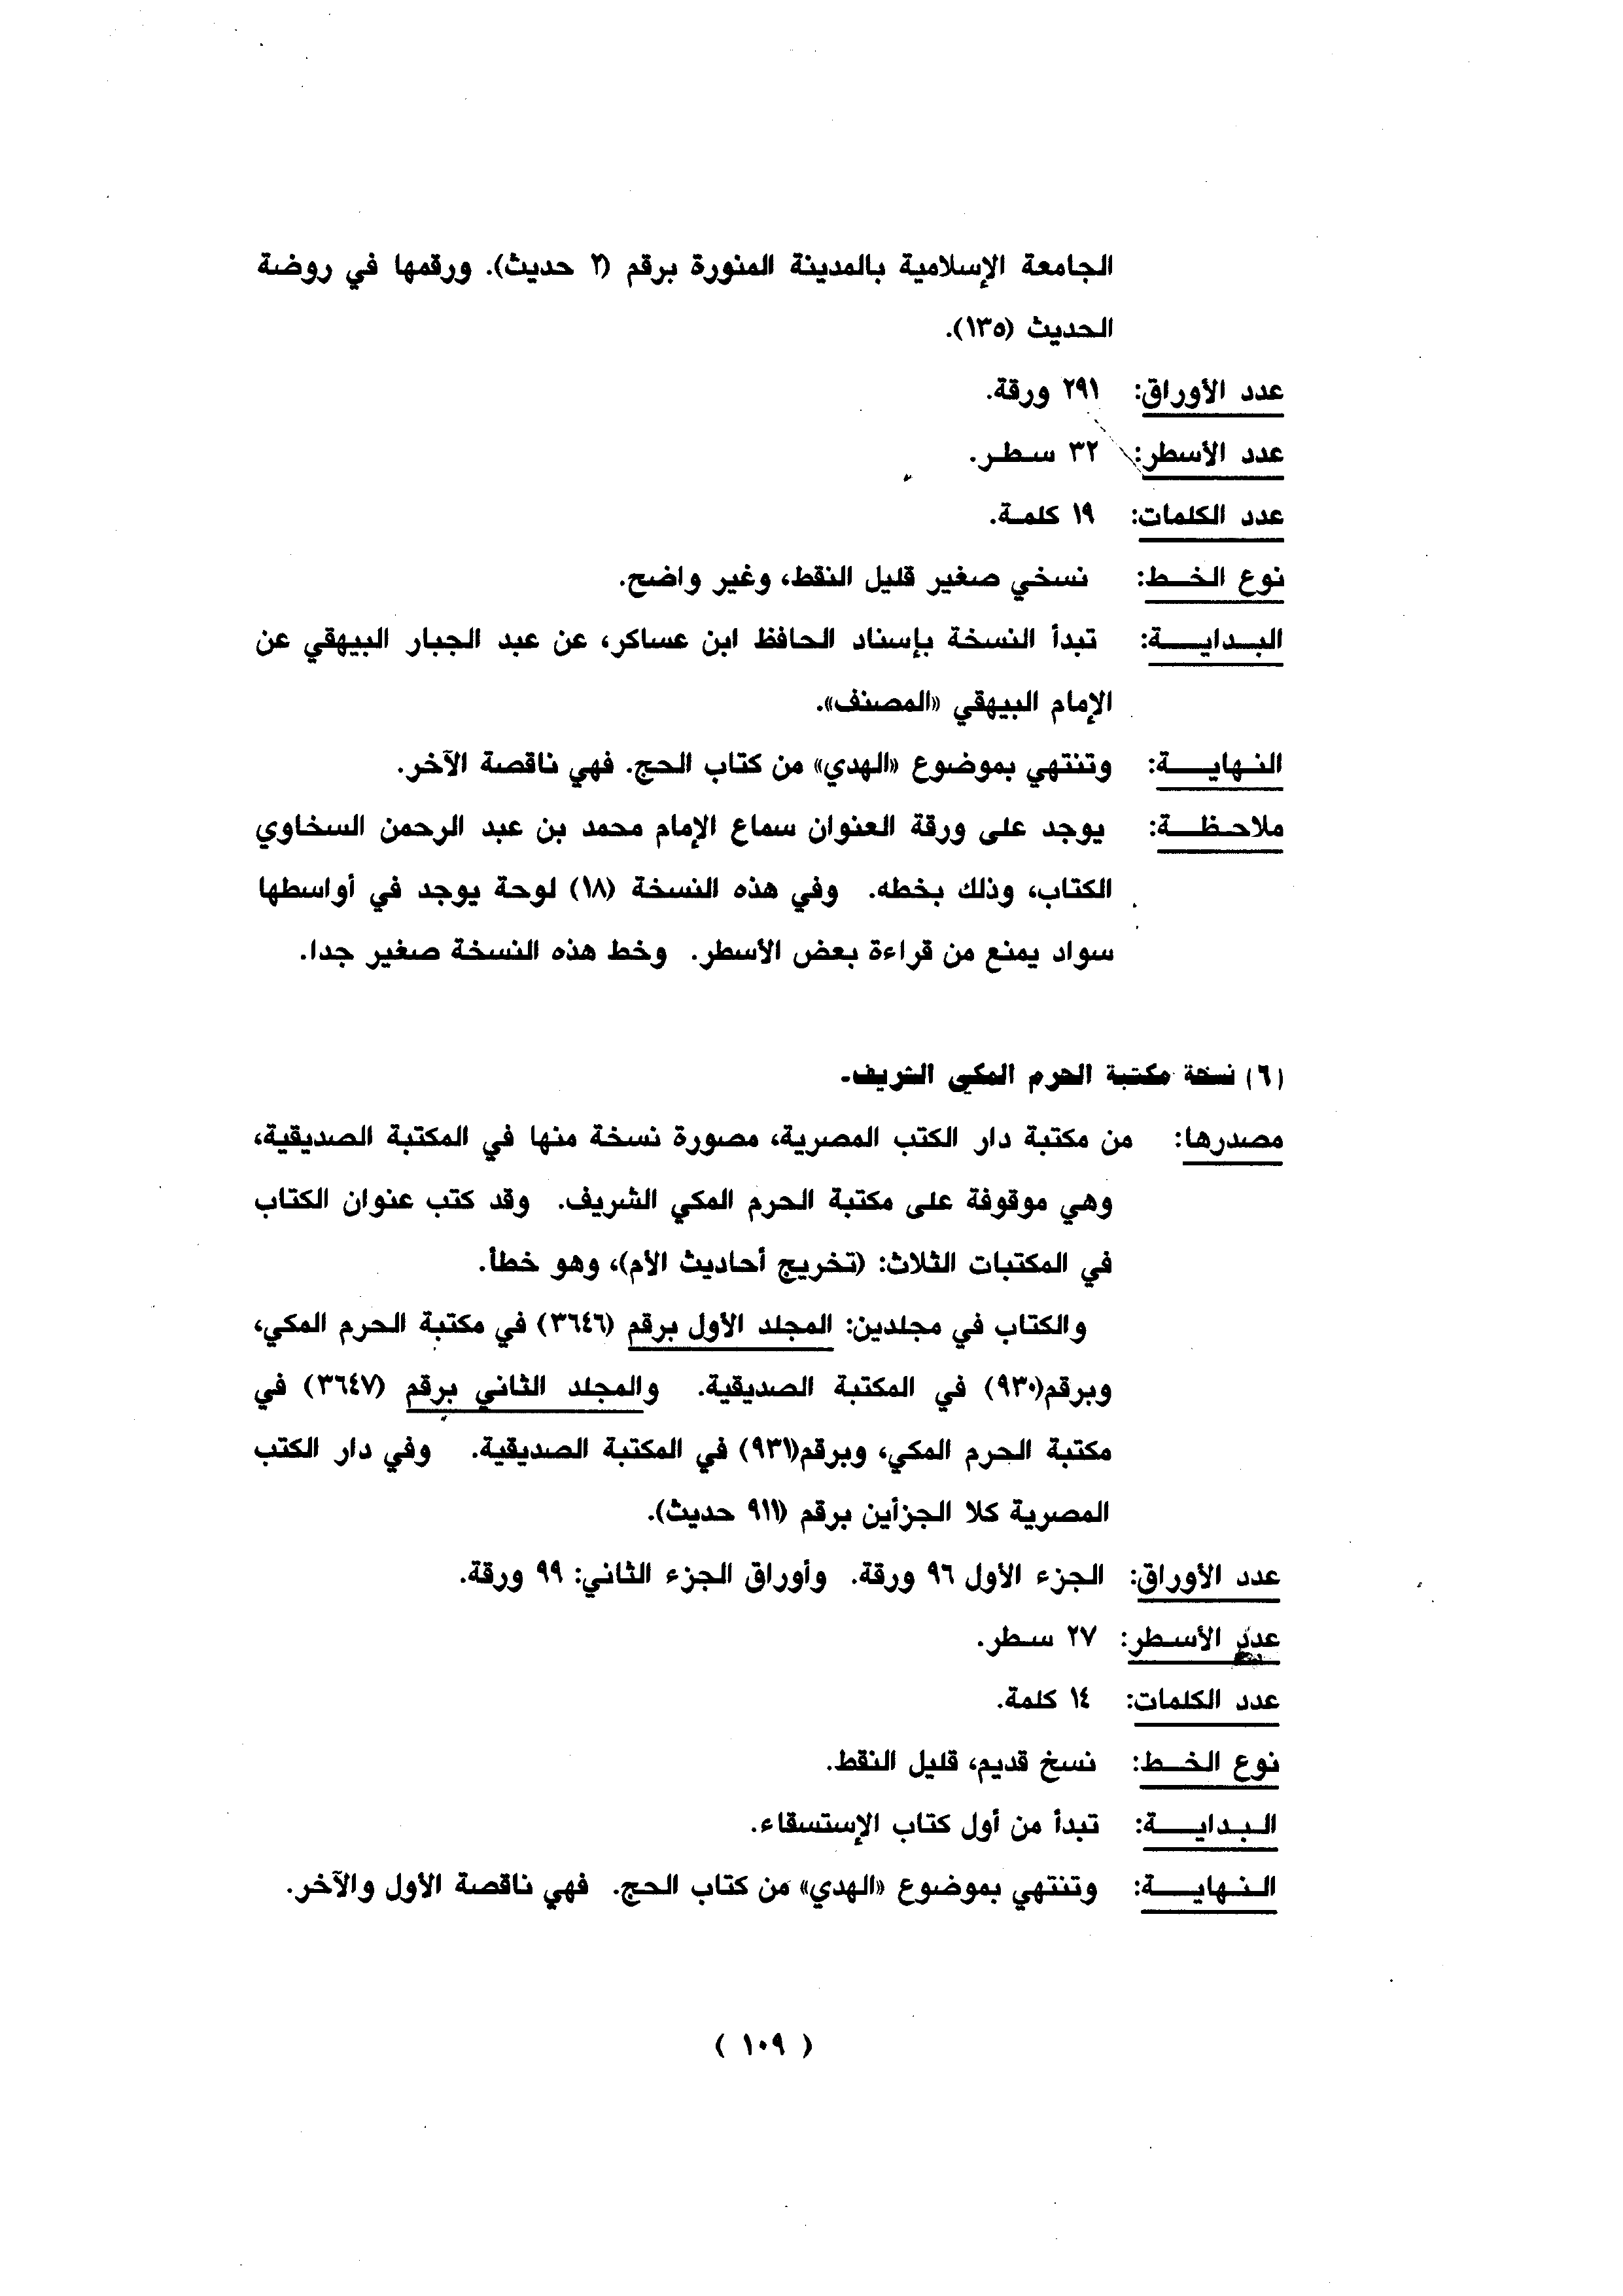 الجامعة الإسلامية بالمدينة المنورة برقم (٢ حديث). ورقمها في روضة
الحديث (١٣٥).
عدد الأوراق: ٢٩١ ورقة.
عدد الأسطر: ٣٢ سطر.
عدد الكلمات: ١٩ كلمة.
نوع الخط: نسخي صغير قليل النقط، وغير واضح.
البداية: تبدأ النسخة بإسناد الحافظ ابن عساكر، عن عبد الجبار البيهقي عن
الإمام البيهقي «المصنف».
النهاية: وتنتهي بموضوع «الهدي» من كتاب الحج. فهي ناقصة الآخر.
ملاحظة: يوجد على ورقة العنوان سماع الإمام محمد بن عبد الرحمن السخاوي
الكتاب، وذلك بخطه. وفي هذه النسخة (١٨) لوحة يوجد في أواسطها
سواد يمنع من قراءة بعض الأسطر. وخط هذه النسخة صغير جدا.
(٦) نسخة مكتبة الحرم المكي الشريف.
مصدرها: من مكتبة دار الكتب المصرية، مصورة نسخة منها في المكتبة الصديقية،
وهي موقوفة على مكتبة الحرم المكي الشريف. وقد كتب عنوان الكتاب
في المكتبات الثلاث: (تخريج أحاديث الأم)، وهو خطأ.
والكتاب في مجلدين: المجلد الأول برقم (٣٦٤٦) في مكتبة الحرم المكي،
وبرقم(٩٣٠) في المكتبة الصديقية. والمجلد الثاني برقم (٣٦٤٧) في
مكتبة الحرم المكي، وبرقم(٩٣١) في المكتبة الصديقية. وفي دار الكتب
المصرية كلا الجزأين برقم (٩١١ حديث).
عدد الأوراق: الجزء الأول ٩٦ ورقة. وأوراق الجزء الثاني: ٩٩ ورقة.
عدد الأسطر: ٢٧ سطر.
عدد الكلمات: ١٤ كلمة.
نوع الخط: نسخ قديم، قليل النقط.
البداية: تبدأ من أول كتاب الإستسقاء.
النهاية: وتنتهي بموضوع «الهدي» من كتاب الحج. فهي ناقصة الأول والآخر.
( ١٠٩ )